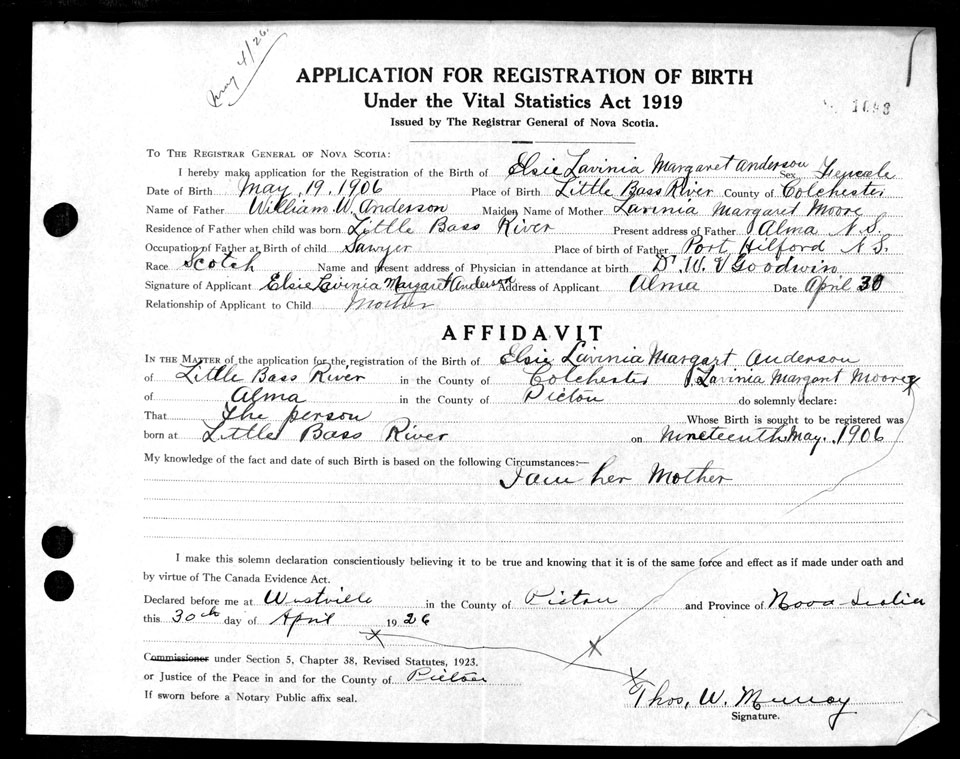 May 4/26
APPLICATION FOR REGISTRATION OF BIRTH
Under the Vital Statistics Act 1919
Issued by The Registrar General of Nova Scotia.
TO THE REGISTRAR GENERAL OF NOVA SCOTIA:
I hereby make application for the Registration of the Birth of Elsie Lavinia Margaret Anderson Sex Female
Date of Birth May. 19. 1906 Place of Birth Little Bass River County of Colchester
Name of Father William W. Anderson Maiden Name of Mother Lavinia Margaret Moore
Residence of Father when child was born Little Bass River Present address of Father Alma N.S.
Occupation of Father at Birth of child Sawyer Place of birth of Father Port Hilford N.S.
Race Scotch Name and present address of Physician in attendance at birth Dr. W. V Goodwin
Signature of Applicant Elsie Lavinia Margaret Anderson Address of Applicant Alma Date April 30
Relationship of Applicant to Child Mother
AFFIDAVIT
IN THE MATTER of the application for the registration of the Birth of Elsie Lavinia Margart Anderson
of Little Bass River in the County of Colchester Lavinia Margaret Moore
of Alma in the County of Pictou do solemnly declare:
That The person Whose Birth is sought to be registered was
born at Little Bass River on Nineteenth May. 1906
My knowledge of the fact and date of such Birth is based on the following Circumstances:—
I am her Mother
I make this solemn declaration conscientiously believing it to be true and knowing that it is of the same force and effect as if made under oath and
by virtue of The Canada Evidence Act.
Declared before me at Westville in the County of Pictou and Province of Nova Scotia
this 30th day of April 1926
Commissioner under Section 5, Chapter 38, Revised Statutes, 1923.
or Justice of the Peace in and for the County of Pictou
If sworn before a Notary Public affix seal.
Thos. W. Murray
Signature.